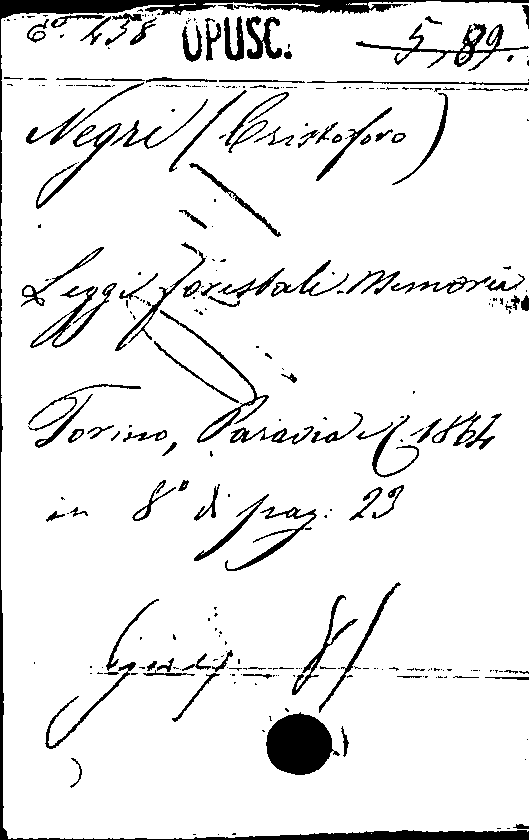 6º. 438 OPUSC. 5,89.
Negri (Cristoforo)
Leggi forestali. Memoria
Torino, Paravia e C. 1864
in 8º di pag. 23